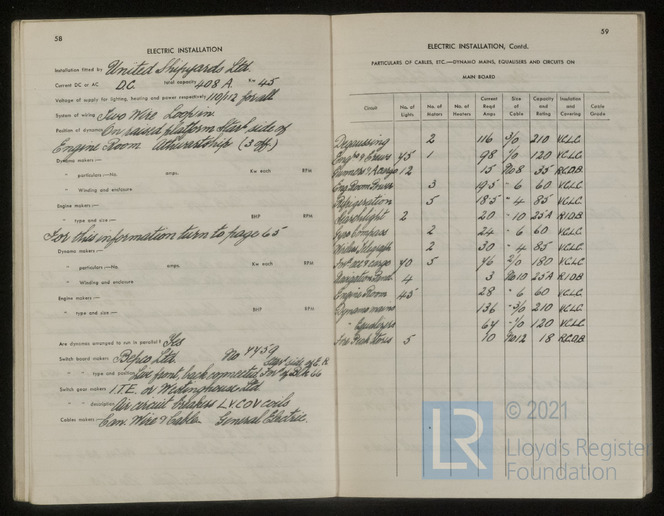 58
ELECTRIC INSTALLATION
Installation fitted by United Shipyards Ltd.
Current DC or AC D.C. total capacity 408 A. KW 45
Voltage of supply for lighting, heating and power respectively 110/112 for all
System of wiring Two Wire Loop in.
Position of dynamo On raised platform Starb. side of
Engine Room Athwartship (3 off)
Dynamo makers—
" particulars—No amps. Kw each RPM
" Winding and enclosure
Engine makers—
" type and size— BHP RPM
For this information turn to page 65
Dynamo makers—
" particulars—No amps. Kw each RPM
" Winding and enclosure
Engine makers—
" type and size— BHP RPM
Are dynamos arranged to run in parallel? Yes
Switch board makers Bepco Ltd. No 4459
" " type and position Live front, back connected, For'd of Blk 66
Starb side of E.R.
Switch gear makers I.T.E. or Westinghouse Ltd
" " description Air circuit breakers L.V.C.O.V coils
Cables makers Can. Wire & Cable General Electric.
59
ELECTRIC INSTALLATION, Contd.
PARTICULARS OF CABLES, ETC.—DYNAMO MAINS, EQUALISERS AND CIRCUITS ON
MAIN BOARD
Circuit No. of Lights No. of Motors No. of Heaters Current Reqd Amps Size of Cable Capacity and Rating Insulation and Covering Cable Grade
Degaussing 2 116 3/0 210 V.C.L.C.
Eng rs & Crews 45 1 98 1/0 120 V.C.L.C.
Gunners & A cargo 12 15 No 8 35 R.C.D.B.
Eng Room Power 3 19.5 - 6 60 V.C.L.C.
Refrigeration 5 18.5 - 4 85 V.C.L.C.
Searchlight 2 20 - 10 25A R.I.D.B.
Gyro Compass 2 24 - 6 60 V.C.L.C.
Wireless Telegraph 2 30 - 4 85 V.C.L.C.
For'd acc & cargo 40 5 46 2/0 180 V.C.L.C.
Navigation Panel 4 3 No 10 25A R.I.D.B.
Engine Room 45 28 - 6 60 V.C.L.C.
Dynamo mains 136 - 3/0 210 V.C.L.C.
" Equalizers 64 - 1/0 120 V.C.L.C.
Fore Peak Stores 5 10 No 12 18 R.C.D.B.
LR
© 2021
Lloyd's Register
Foundation